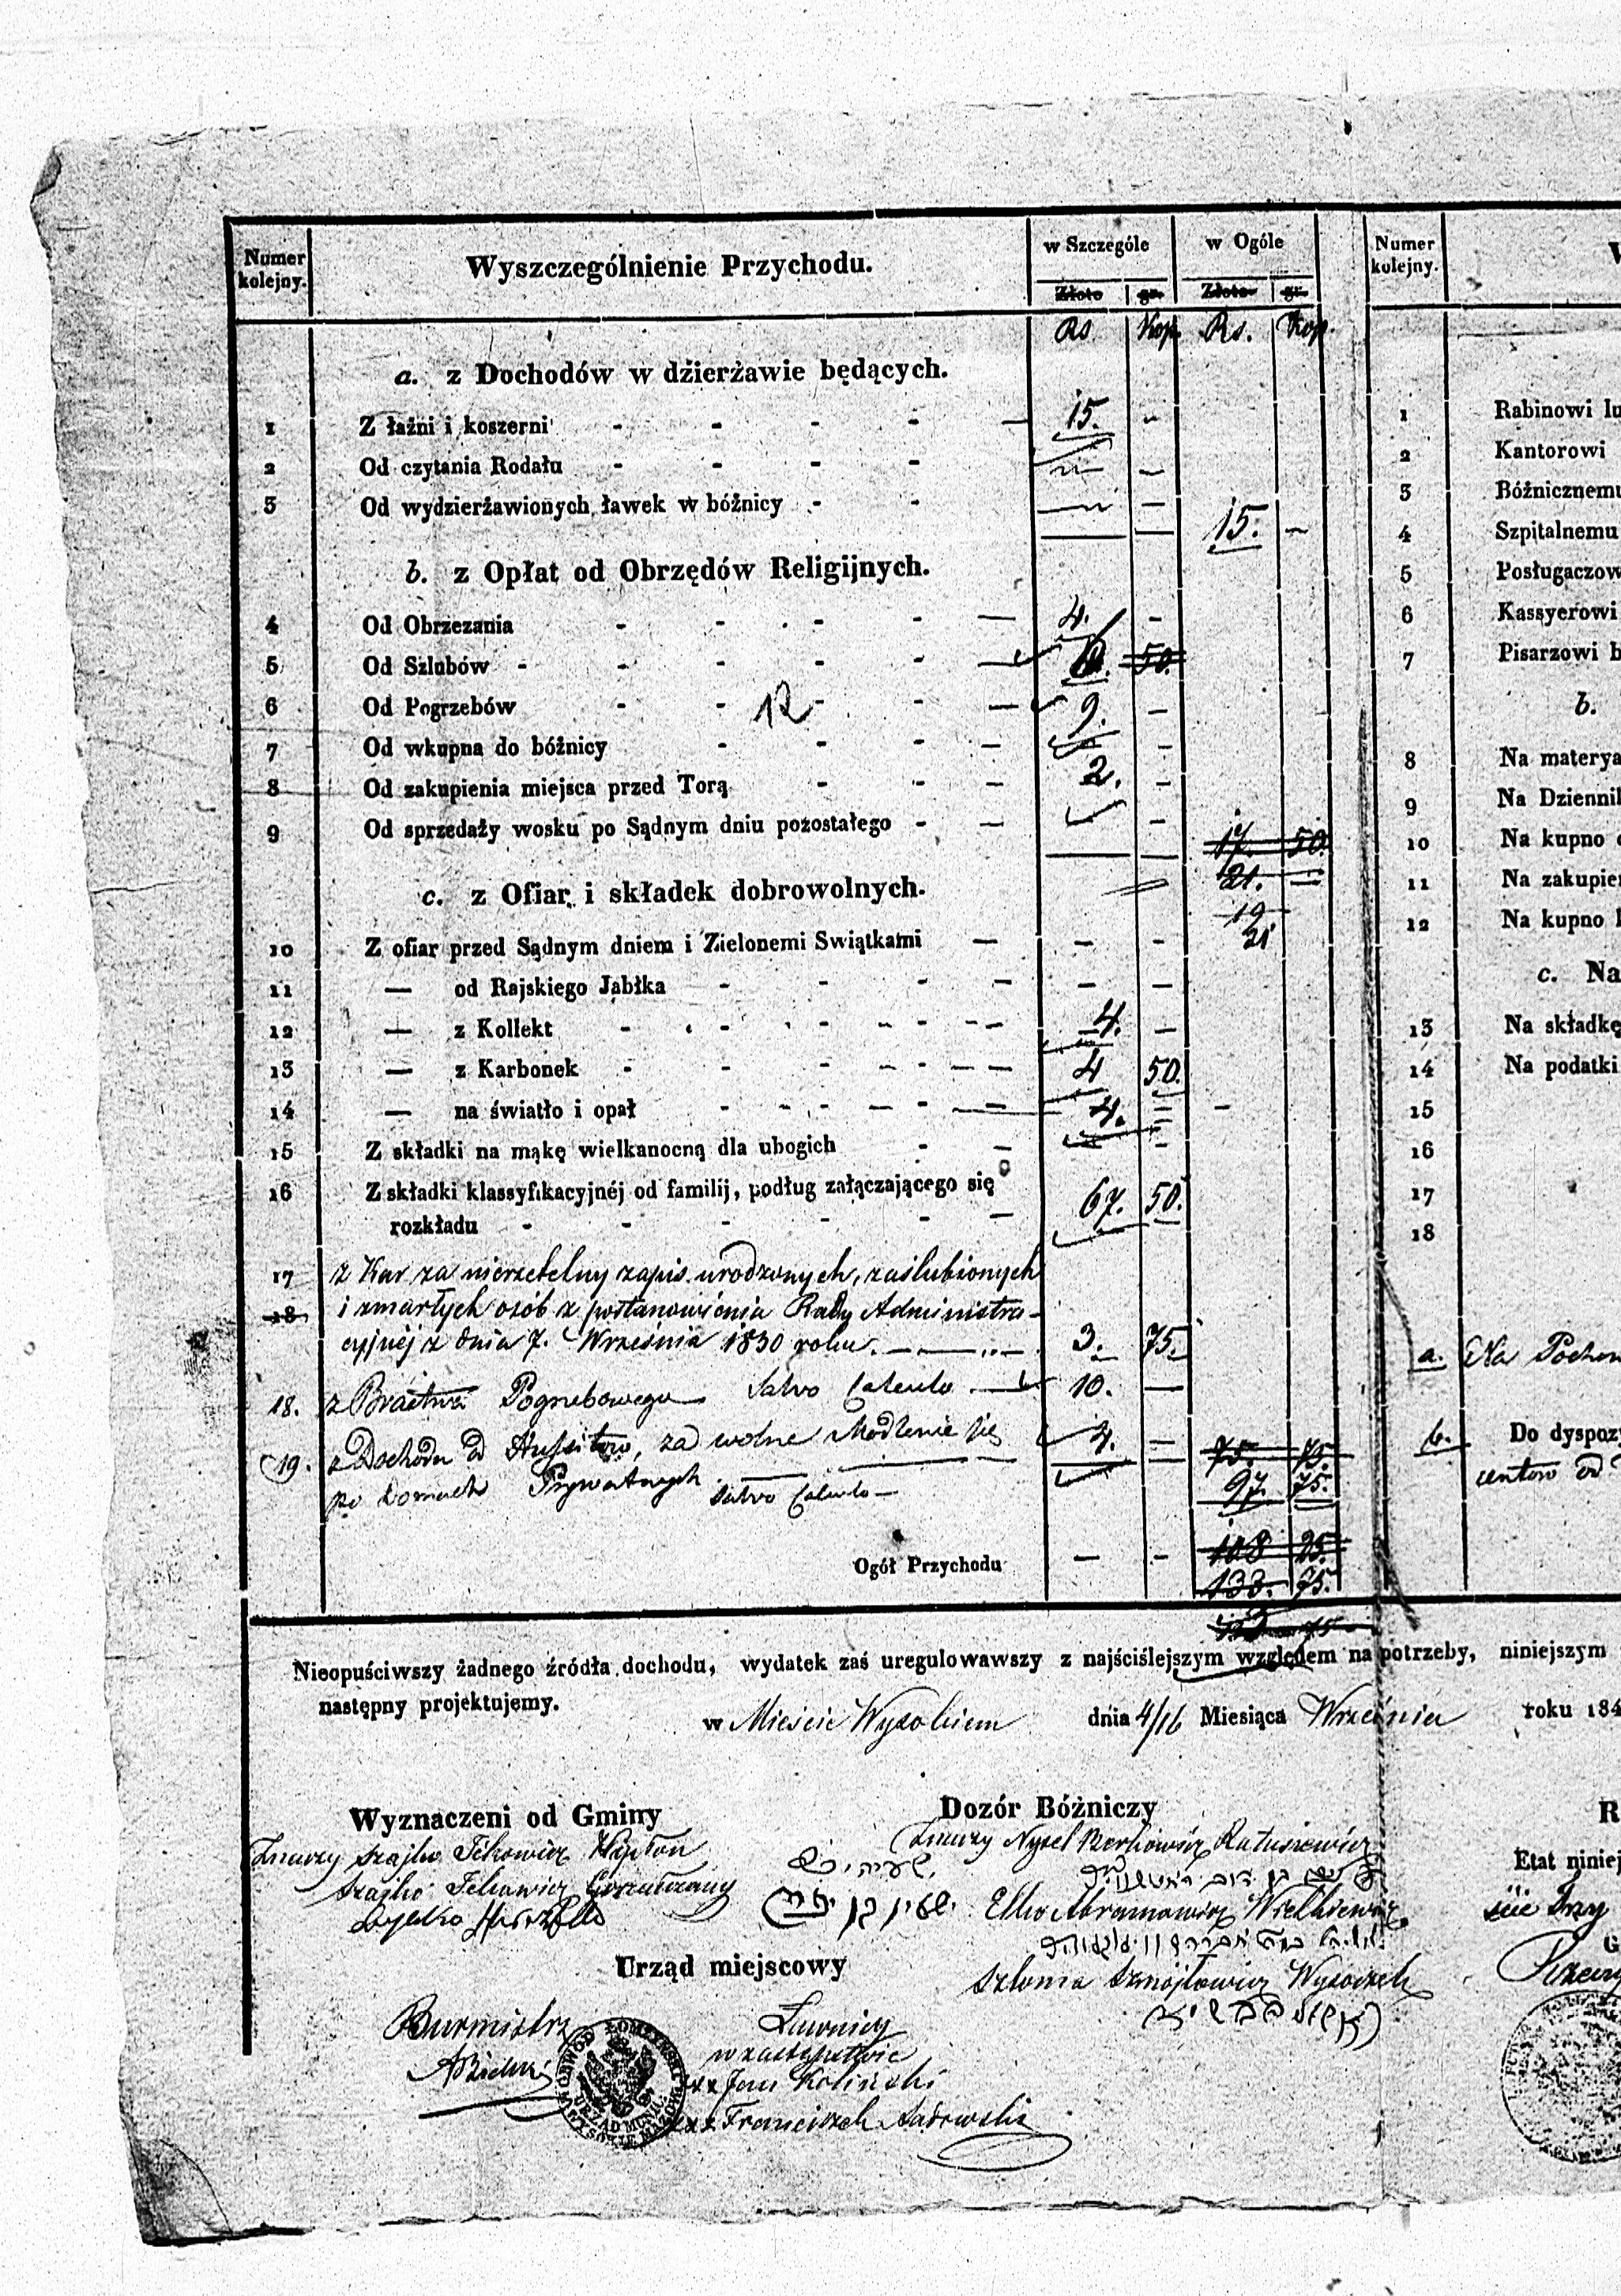 Numer kolejny.
Wyszczególnienie Przychodu.
w Szczególe
w Ogóle
Numer kolejny.
Złote gr. Złote gr.
Rs Kop. Rs. Kop.
a. z Dochodów w dźierżawie będących.
1 Z łaźni i koszerni - - - - — 15. -
2 Od czytania Rodału - - - - — —
3 Od wydzierżawionych ławek w bóźnicy - - — —
15. —
b. z Opłat od Obrzędów Religijnych.
4 Od Obrzezania - - - - — 4. -
5 Od Szlubów - - - - - — 50.
6 Od Pogrzebów - - 12 - - — 9. —
7 Od wkupna do bóźnicy - - - — -
8 Od zakupienia miejsca przed Torą - - — 2. -
9 Od sprzedaży wosku po Sądnym dniu pozostałego - — -
17. 50.
21. —
19
21
c. z Ofiar i składek dobrowolnych.
10 Z ofiar przed Sądnym dniem i Zielonemi Swiątkami — - -
11 — od Rajskiego Jabłka - - - — - -
12 — z Kollekt - - - - - - 4. —
13 — z Karbonek - - - - - 4 50.
14 — na światło i opał - - - - — 4. = -
15 Z składki na mąkę wielkanocną dla ubogich - — -
16 Z składki klassyfikacyjnéj od familij, podług załączającego się
rozkładu - - - - - — 67. 50.
17 z Kar za nierzetelny zapis urodzonych, zaślubionych
18 i zmarłych osób z postanowienia Rady Administra-
cyjnéj z dnia 7. Września 1830 roku. — 3. 75.
18. z Bractwa Pogrzebowego Salvo Calculo — 10. —
19. z Dochodu od Hussitów, za wolne Modlenie się 4. =
po Domach Prywatnych Salvo Calculo —
75. 75.
97. 75.
Ogół Przychodu - - 108 25.
133. 75.
Nieopuściwszy żadnego źródła dochodu, wydatek zaś uregulowawszy z najściślejszym względem na potrzeby, niniejszym
następny projektujemy.
w Mieście Wysokiem dnia 4/16 Miesiąca Września roku 184
Wyznaczeni od Gminy
Dozór Bóźniczy
Szajko
Szajko
Nysel Berkowicz Ratusiewicz
Elko Abramowicz
Szloma Szmojłowicz
Urząd miejscowy
Burmistrz
Ławnicy
w zastępstwie
xxx Jan Koliński
xxx Franciszek Sadowski
1 Rabinowi lu
2 Kantorowi
3 Bóźnicznemu
4 Szpitalnemu
5 Posługaczow
6 Kassyerowi
7 Pisarzowi b
b.
8 Na materya
9 Na Dziennik
10 Na kupno
11 Na zakupien
12 Na kupno
c. Na
13 Na składkę
14 Na podatki
15
16
17
18
a. Na
b. Do dyspozy
R
Etat niniej
Trzy
G